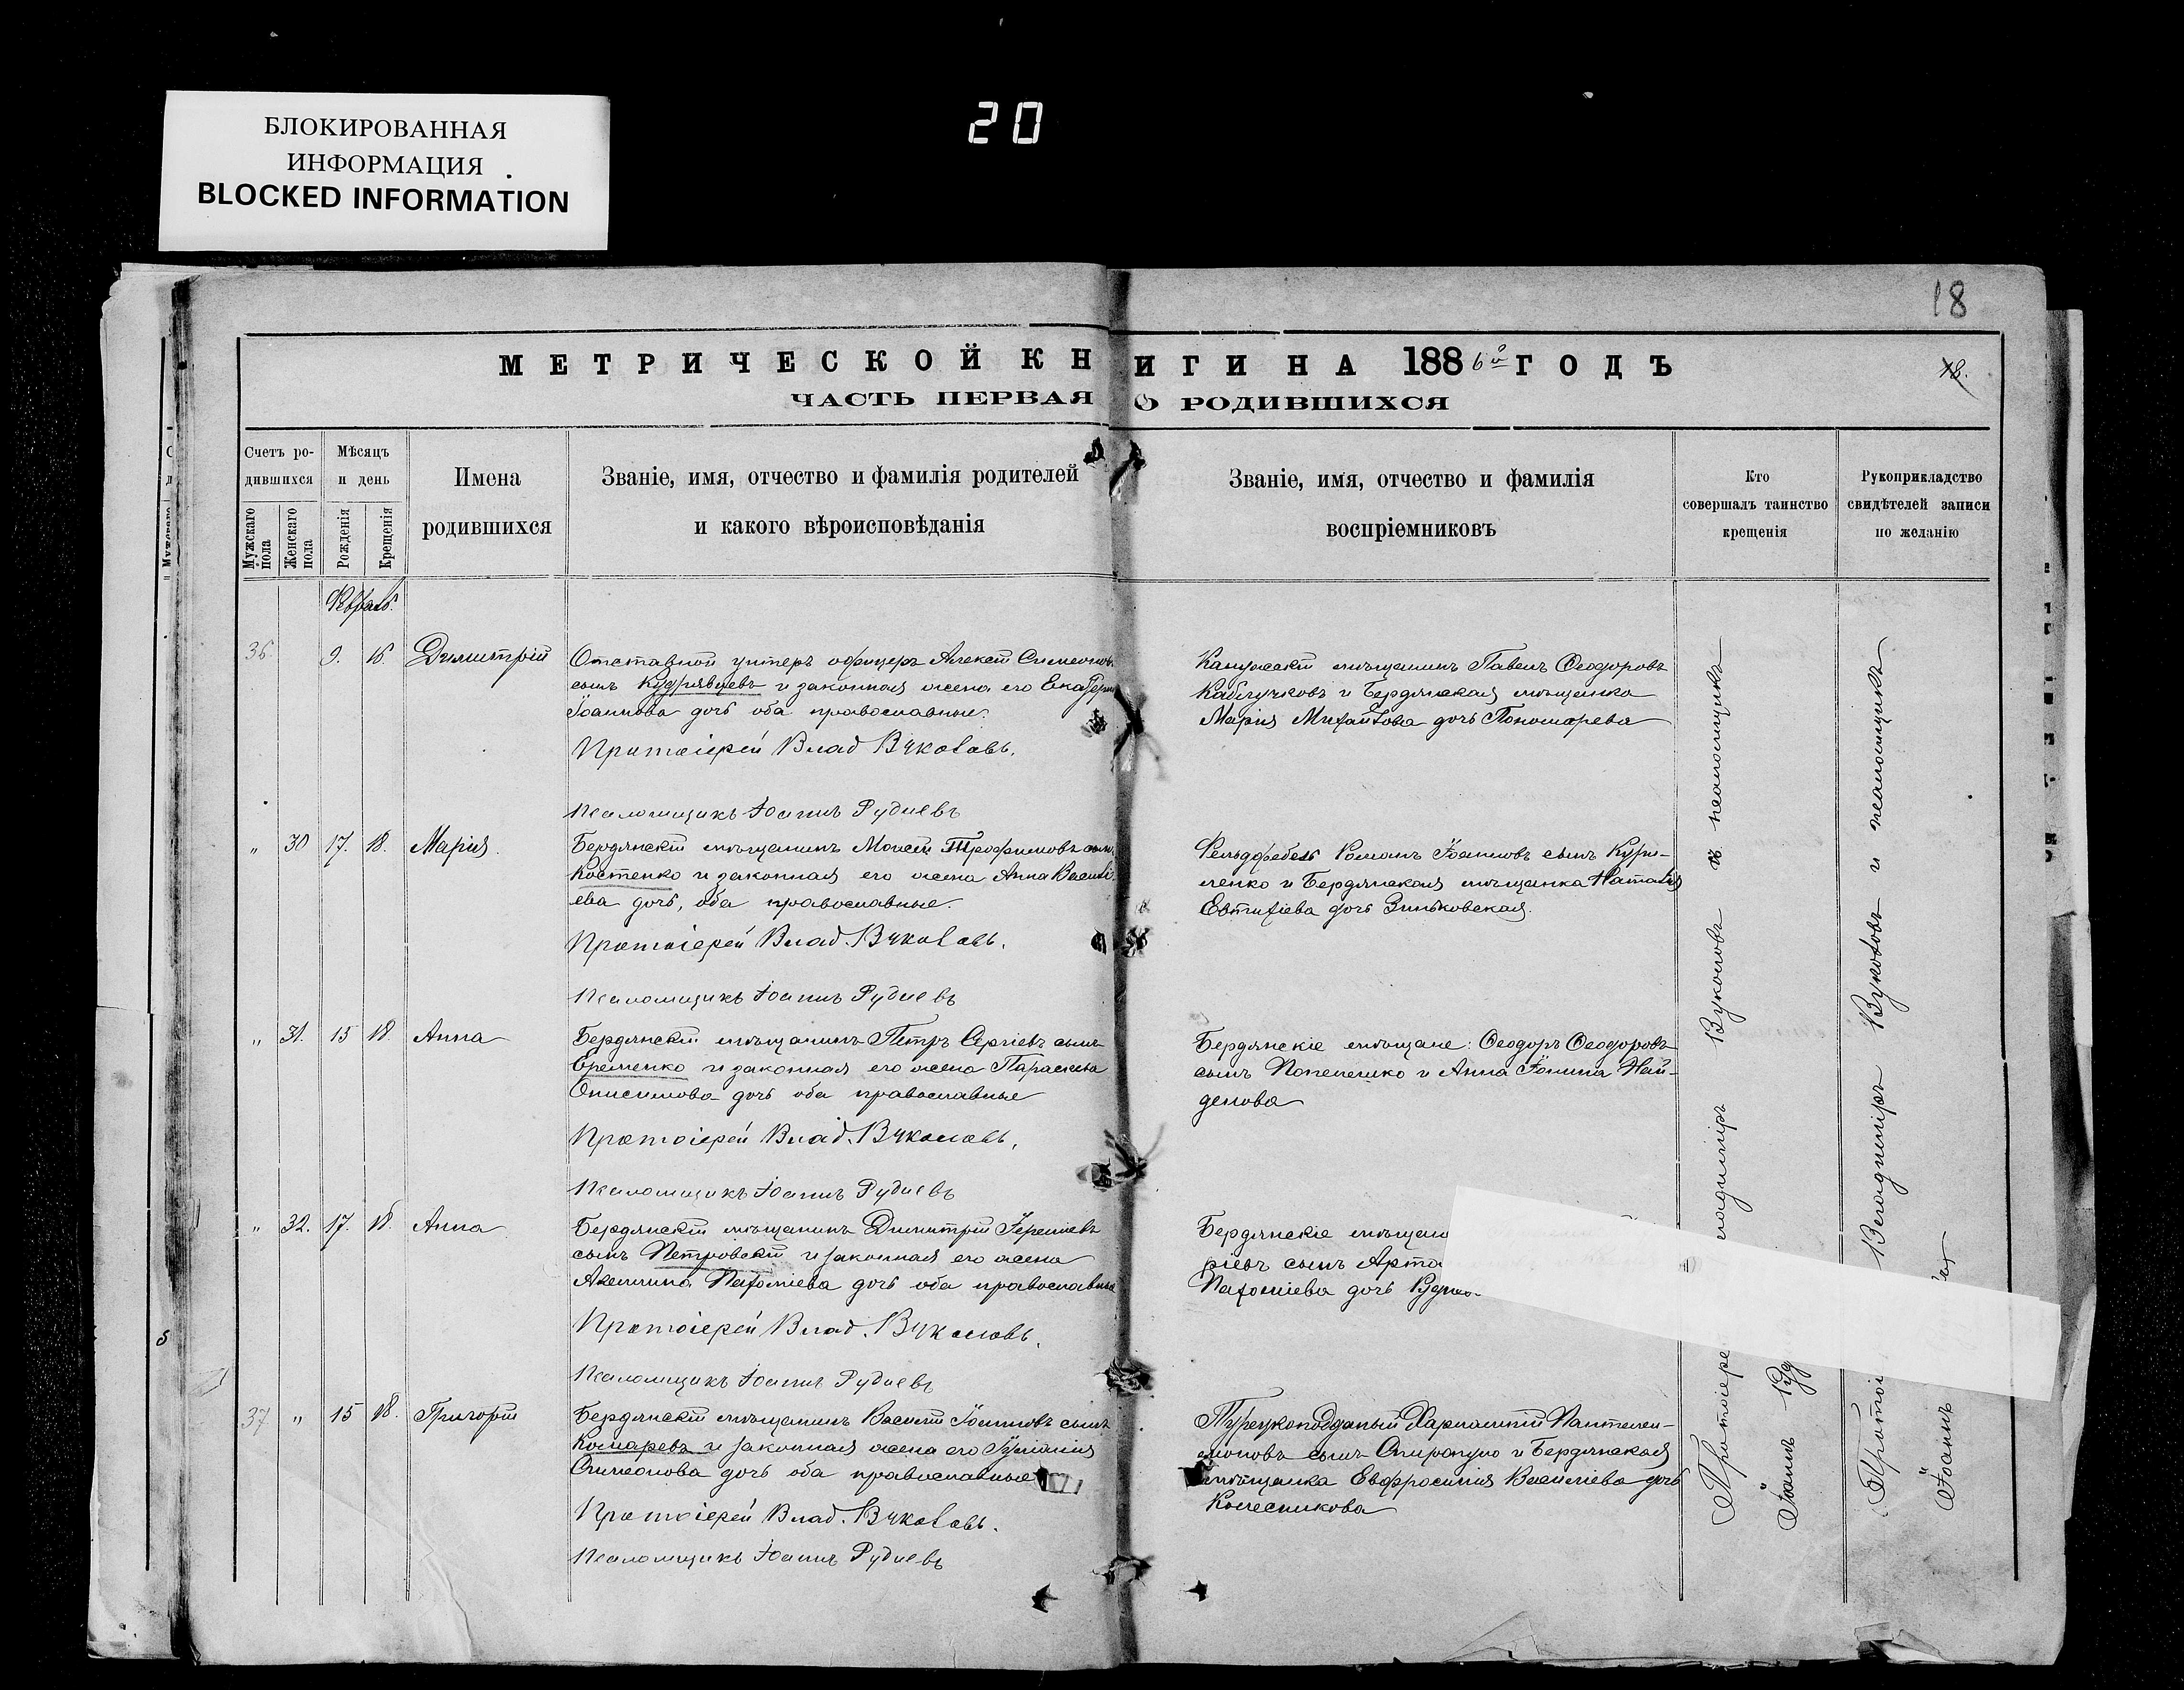 БЛОКИРОВАННАЯ
ИНФОРМАЦИЯ
BLOCKED INFORMATION
20
18
МЕТРИЧЕСКОЙ КНИГИ НА 1886й ГОДЪ
18.
ЧАСТЬ ПЕРВАЯ О РОДИВШИХСЯ
Счетъ родившихся
Мужскаго пола
Женскаго пола
Мѣсяцъ и день
Рожденія
Крещенія
Имена родившихся
Званіе, имя, отчество и фамилія родителей
и какого вѣроисповѣданія
Званіе, имя, отчество и фамилія
воспріемниковъ
Кто
совершалъ таинство
крещенія
Рукоприкладство
свидѣтелей записи
по желанію
Февраль.
36 9. 16. Димитрій
Отставной унтеръ офицеръ Алексѣй Симеоновъ
сынъ Кудрявцевъ и законная жена его Екатерина
Іоаннова дочь оба православные.
Протоіерей Влад. Вуколовъ.
Псаломщикъ Іоаннъ Рудневъ
Калужскій мѣщанинъ Павелъ Ѳеодоровъ
Каблучковъ и Бердянская мѣщанка
Марія Михайлова дочь Пономарева
" 30 17. 18. Марія
Бердянскій мѣщанинъ Моисей Трофимовъ сынъ
Костенко и законная его жена Анна Василь-
ева дочь, оба православные.
Протоіерей Влад. Вуколовъ.
Псаломщикъ Іоаннъ Рудневъ
Фельдфебель Романъ Іоанновъ сынъ Кури-
ленко и Бердянская мѣщанка Наталія
Евтихіева дочь Зиньковская.
" 31. 15 18. Анна
Бердянскій мѣщанинъ Петръ Сергіевъ сынъ
Еременко и законная его жена Параскева
Онисимова дочь оба православные
Протоіерей Влад. Вуколовъ.
Псаломщикъ Іоаннъ Рудневъ
Бердянскіе мѣщане: Ѳеодоръ Ѳеодоровъ
сынъ и Анна Іонина Най-
денова
" 32. 17. 18. Анна
Бердянскій мѣщанинъ Димитрій Іереміевъ
сынъ Петровскій и законная его жена
Акилина Пахоміева дочь оба православные
Протоіерей Влад. Вуколовъ.
Псаломщикъ Іоаннъ Рудневъ
Бердянскіе мѣщан
ріевъ сынъ Арта
Пахоміева дочь
37 " 15 18. Григорій
Бердянскій мѣщанинъ Василій Іоанновъ сынъ
Комаревъ и законная жена его Іуліанія
Симеонова дочь оба православные
Протоіерей Влад. Вуколовъ.
Псаломщикъ Іоаннъ Рудневъ
Турецкоподданый Харлампій Пантелеи-
моновъ сынъ и Бердянская
мѣщанка Евфросинія Василіева дочь
Колесникова
Протоіере ладиміръ Вуколовъ и псаломщикъ
Іоаннъ Руд
Протоі Владиміръ Вуколовъ и псаломщикъ
Іоаннъ